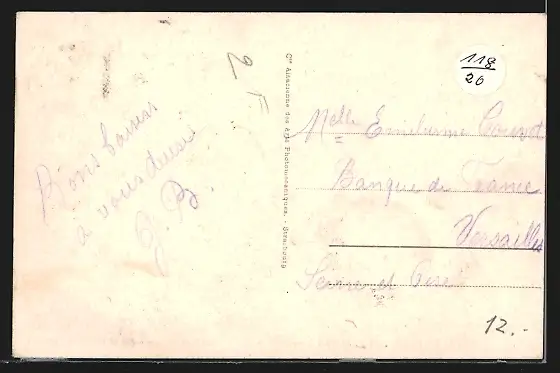 Bons baisers
à vous deux
J. B.
2 F
Cie Alsacienne des Arts Photomécaniques. - Strasbourg
118
20
Melle
Banque de France
Versailles
Seine et Oise
12.-